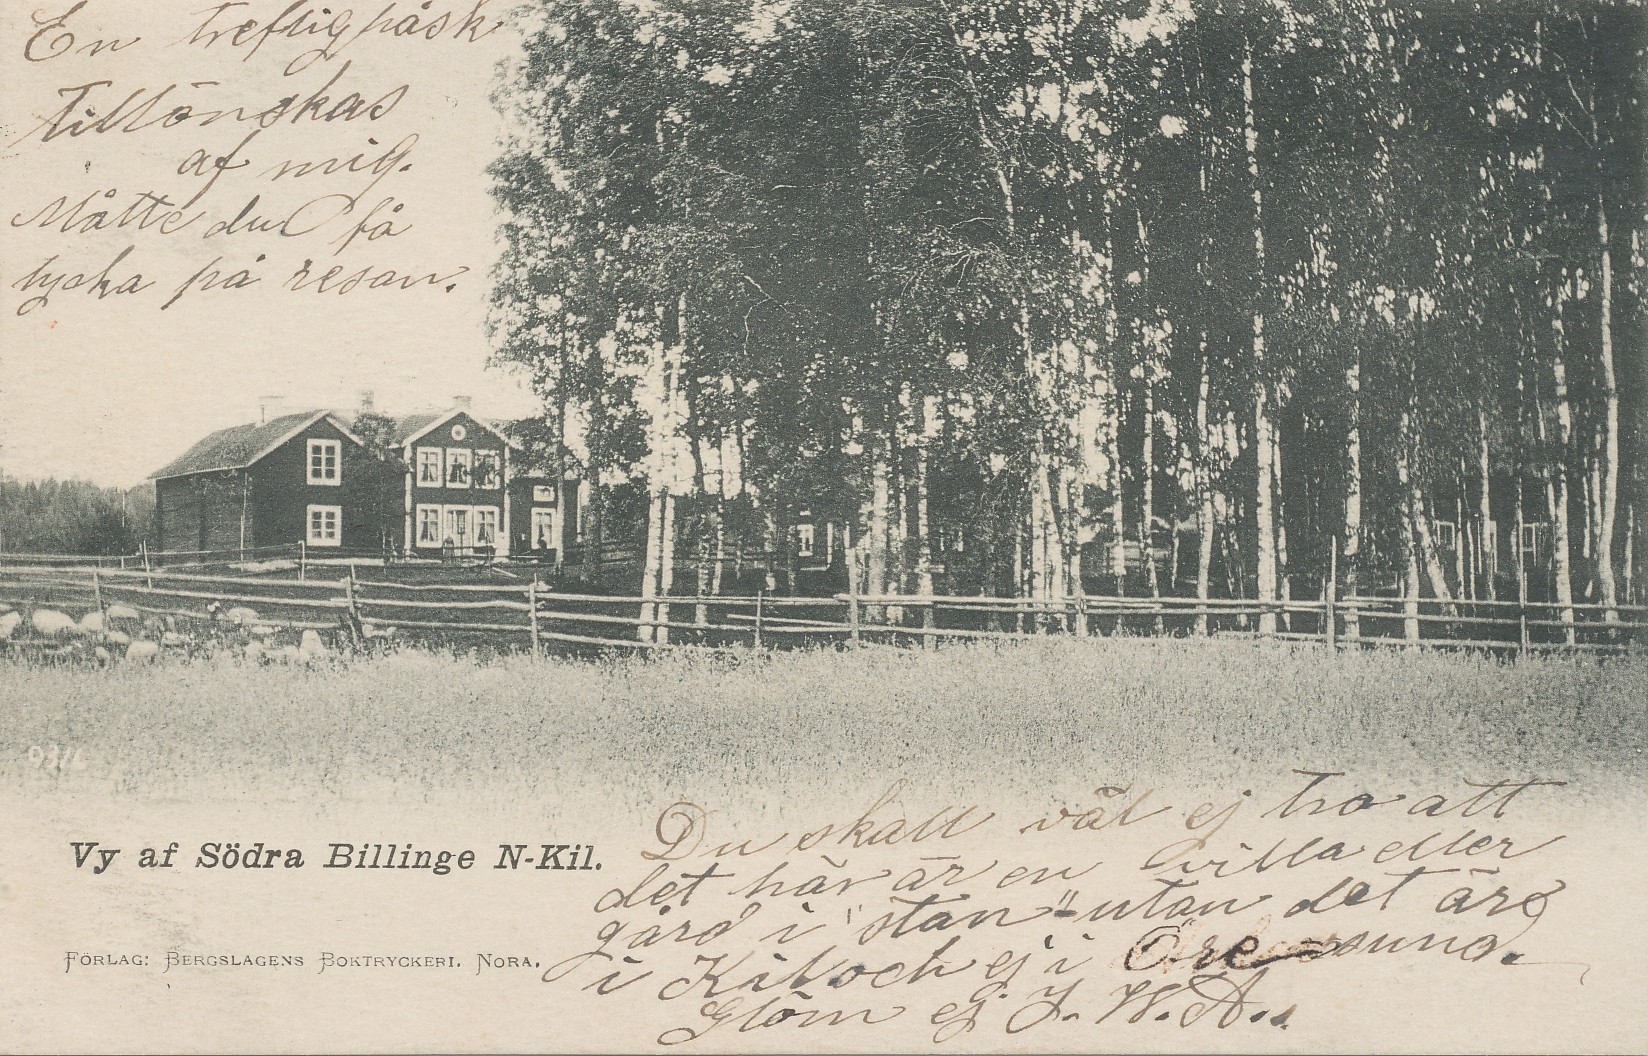 En treflig påsk
tillönskas
af mig.
Måtte du få
lycka på resan.
0316
Vy af Södra Billinge N-Kil.
Förlag: Bergslagens Boktryckeri, Nora.
Du skall väl ej tro att
det här är en villa eller
gård i "stan" utan det är
i Kil och ej i Öresund.
Glöm ej J. W. A.